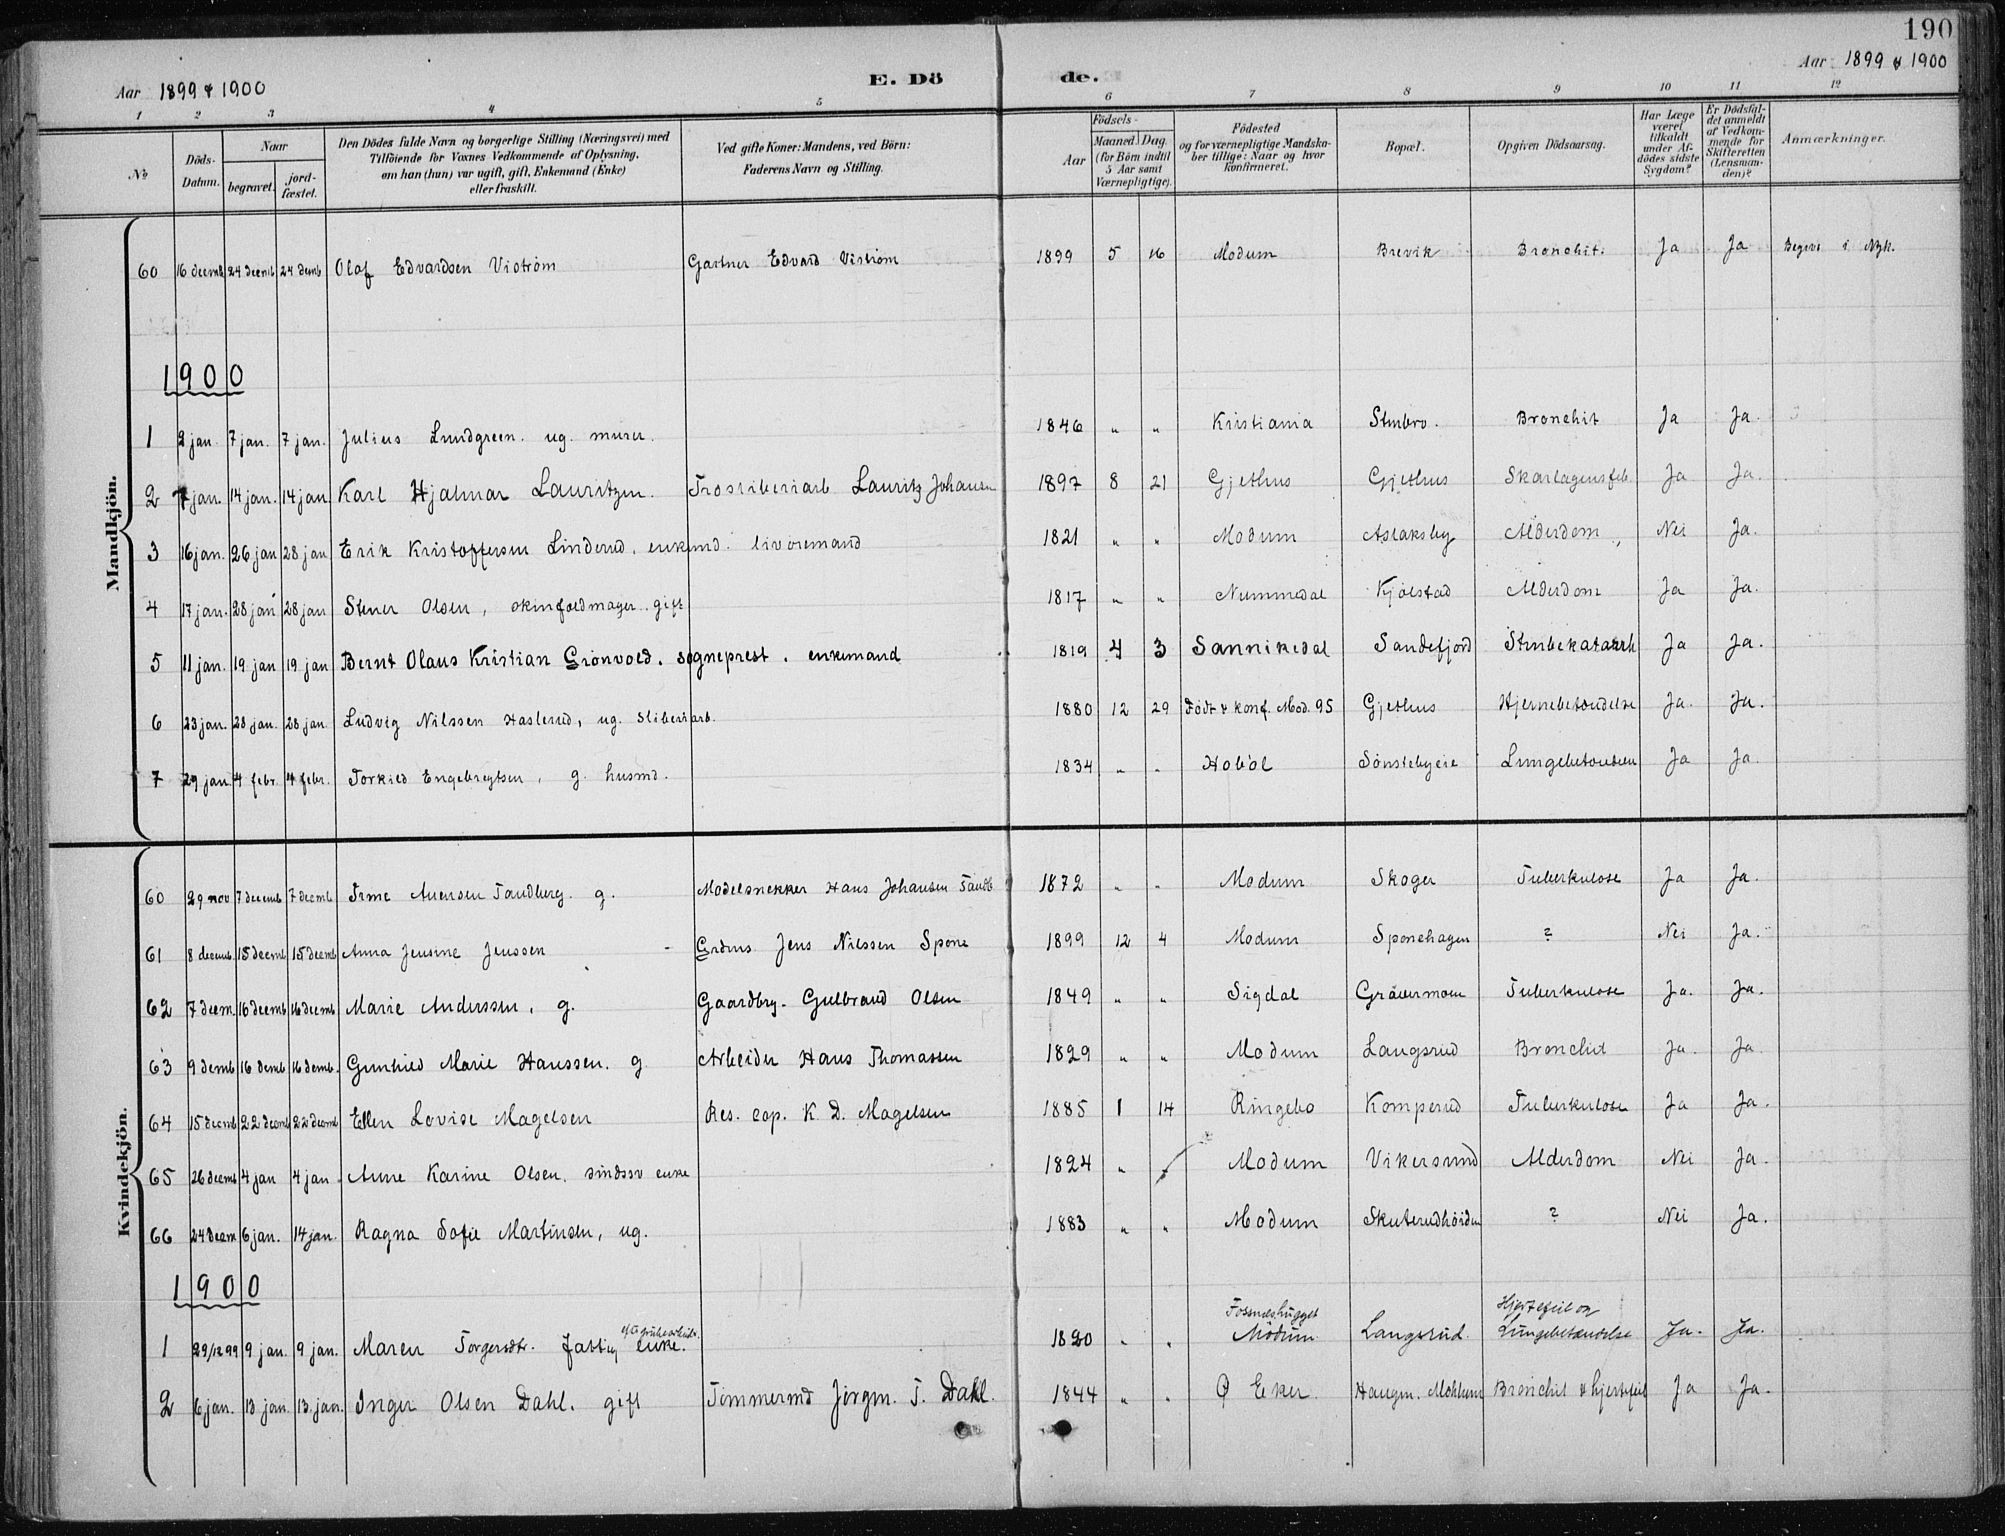 190
Aar 1899 & 1900 E. Döde. Aar 1899 & 1900
1 2 3 4 5 6 7 8 9 10 11 12
No
Döds-Datum.
Naar
begravet.
jord-fæstet.
Den Dödes fulde Navn og borgerlige Stilling (Næringsvei) med
Tilföiende for Voxnes Vedkommende af Oplysning,
om han (hun) var ugift, gift, Enkemand (Enke)
eller fraskilt.
Ved gifte Koner: Mandens, ved Börn:
Faderens Navn og Stilling.
Födsels-
Aar
Maaned. Dag.
(for Börn indtil
5 Aar samt
Værnepligtige).
Födested
og for værnepligtige Mandska-
ber tillige: Naar og hvor
konfirmeret.
Bopæl.
Opgiven Dödsaarsag.
Har Læge
været
tilkaldt
under Af-
dödes sidste
Sygdom?
Er Dödsfal-
det anmeldt
af Vedkom-
mende for
Skifteretten
(Lensman-
den)?
Anmærkninger.
Mandkjön.
60 16 decmb 24 decmb 24 demb Olaf Edvardsen Viström Gartner Edvard Viström 1899 5 16 Modum Brevik Bronchit. Ja Ja i Nyk.
1900
1 2 jan. 7 jan. 7 jan. Julius Lundgreen. ug. murer. 1846 " " Kristiania Stenbro. Bronchit Ja Ja.
2 7 jan. 14 jan. 14 jan Karl Hjalmar Lauritzen. Træsliberiarb Lauritz Johansen 1897 8 21 Gjethus Gjethus Skarlagensfeb Ja Ja.
3 16 jan. 26 jan 28 jan Erik Kristoffersen Linderud, enkemd. livöremand 1821 " " Modum Aslaksby Alderdom Nei Ja.
4 17 jan. 28 jan 28 jan Stener Olsen, skinfældmager. gift 1817 " " Nummedal Kjölstad Alderdom Ja Ja.
5 11 jan. 19 jan 19 jan Bernt Olaus Kristian Grönvold. sogneprest. enkemand 1819 4 3 Sannikedal Sandefjord Strubekatarrh Ja Ja.
6 23 jan. 28 jan. 28 jan. Ludvig Nilssen Haslerud, ug. sliberiarb. 1880 12 29 Födt & konf. Mod. 95 Gjethus Hjernebetændelse Ja. Ja.
7 29 jan 4 febr. 4 febr. Torkild Engebregtsen, g. husmd. 1834 " " Haböl Sönstebyeie Lungebetændelse Ja Ja.
Kvindekjön.
60 29 nov 7 decemb 7 decmb Tandberg. g. Modelsnekker Hans Johansen Tandb 1872 " " Modum Skoger Tuberkulose Ja Ja.
61 8 decemb. 15 decmb 15 decmb Anna Jensine Jenssen Grdms Jens Nilssen Spone 1899 12 4 Modum Sponehagen ? Nei Ja.
62 7 decm. 16 decmb 16 decmb Marie Anderssen, g. Gaardbrg. Gulbrand Olsen 1849 " " Sigdal Gråvermoen Tuberkulose Ja. Ja.
63 9 demb 16 demb 16 demb. Gunhild Marie Hanssen. g Arbeider Hans Thomassen 1829 " " Modum Langsrud Bronchit Ja. Ja
64 15 decmb 22 decmb 22 decmb Ellen Lovise Magelsen Res. cap. K D. Magelsen 1885 1 14 Ringebo Komperud Tuberkulose Ja Ja.
65 26 decmb 4 jan 4 jan Anne Karine Olsen, sindssv enke 1824 " " Modum Vikersund Alderdom Nei Ja.
66 24 decm 6 jan. 14 jan. Ragna Sofie Martinsen, ug. 1883 " " Modum Skuterudhöiden ? Nei Ja.
1900
1 29/12 99 9 jan. 9 jan. Maren Torgersdt. fattig enke. 1820 " " Modum Langsrud Hjertefeil og Lungebetændelse Ja. Ja.
2 6 jan. 13 jan. 13 jan. Inger Olsen Dahl. gift Tömmermd Jörgen. T. Dahl. 1844 " " Ø Eker. Haugen. Bronchit & hjertefeil Ja Ja.